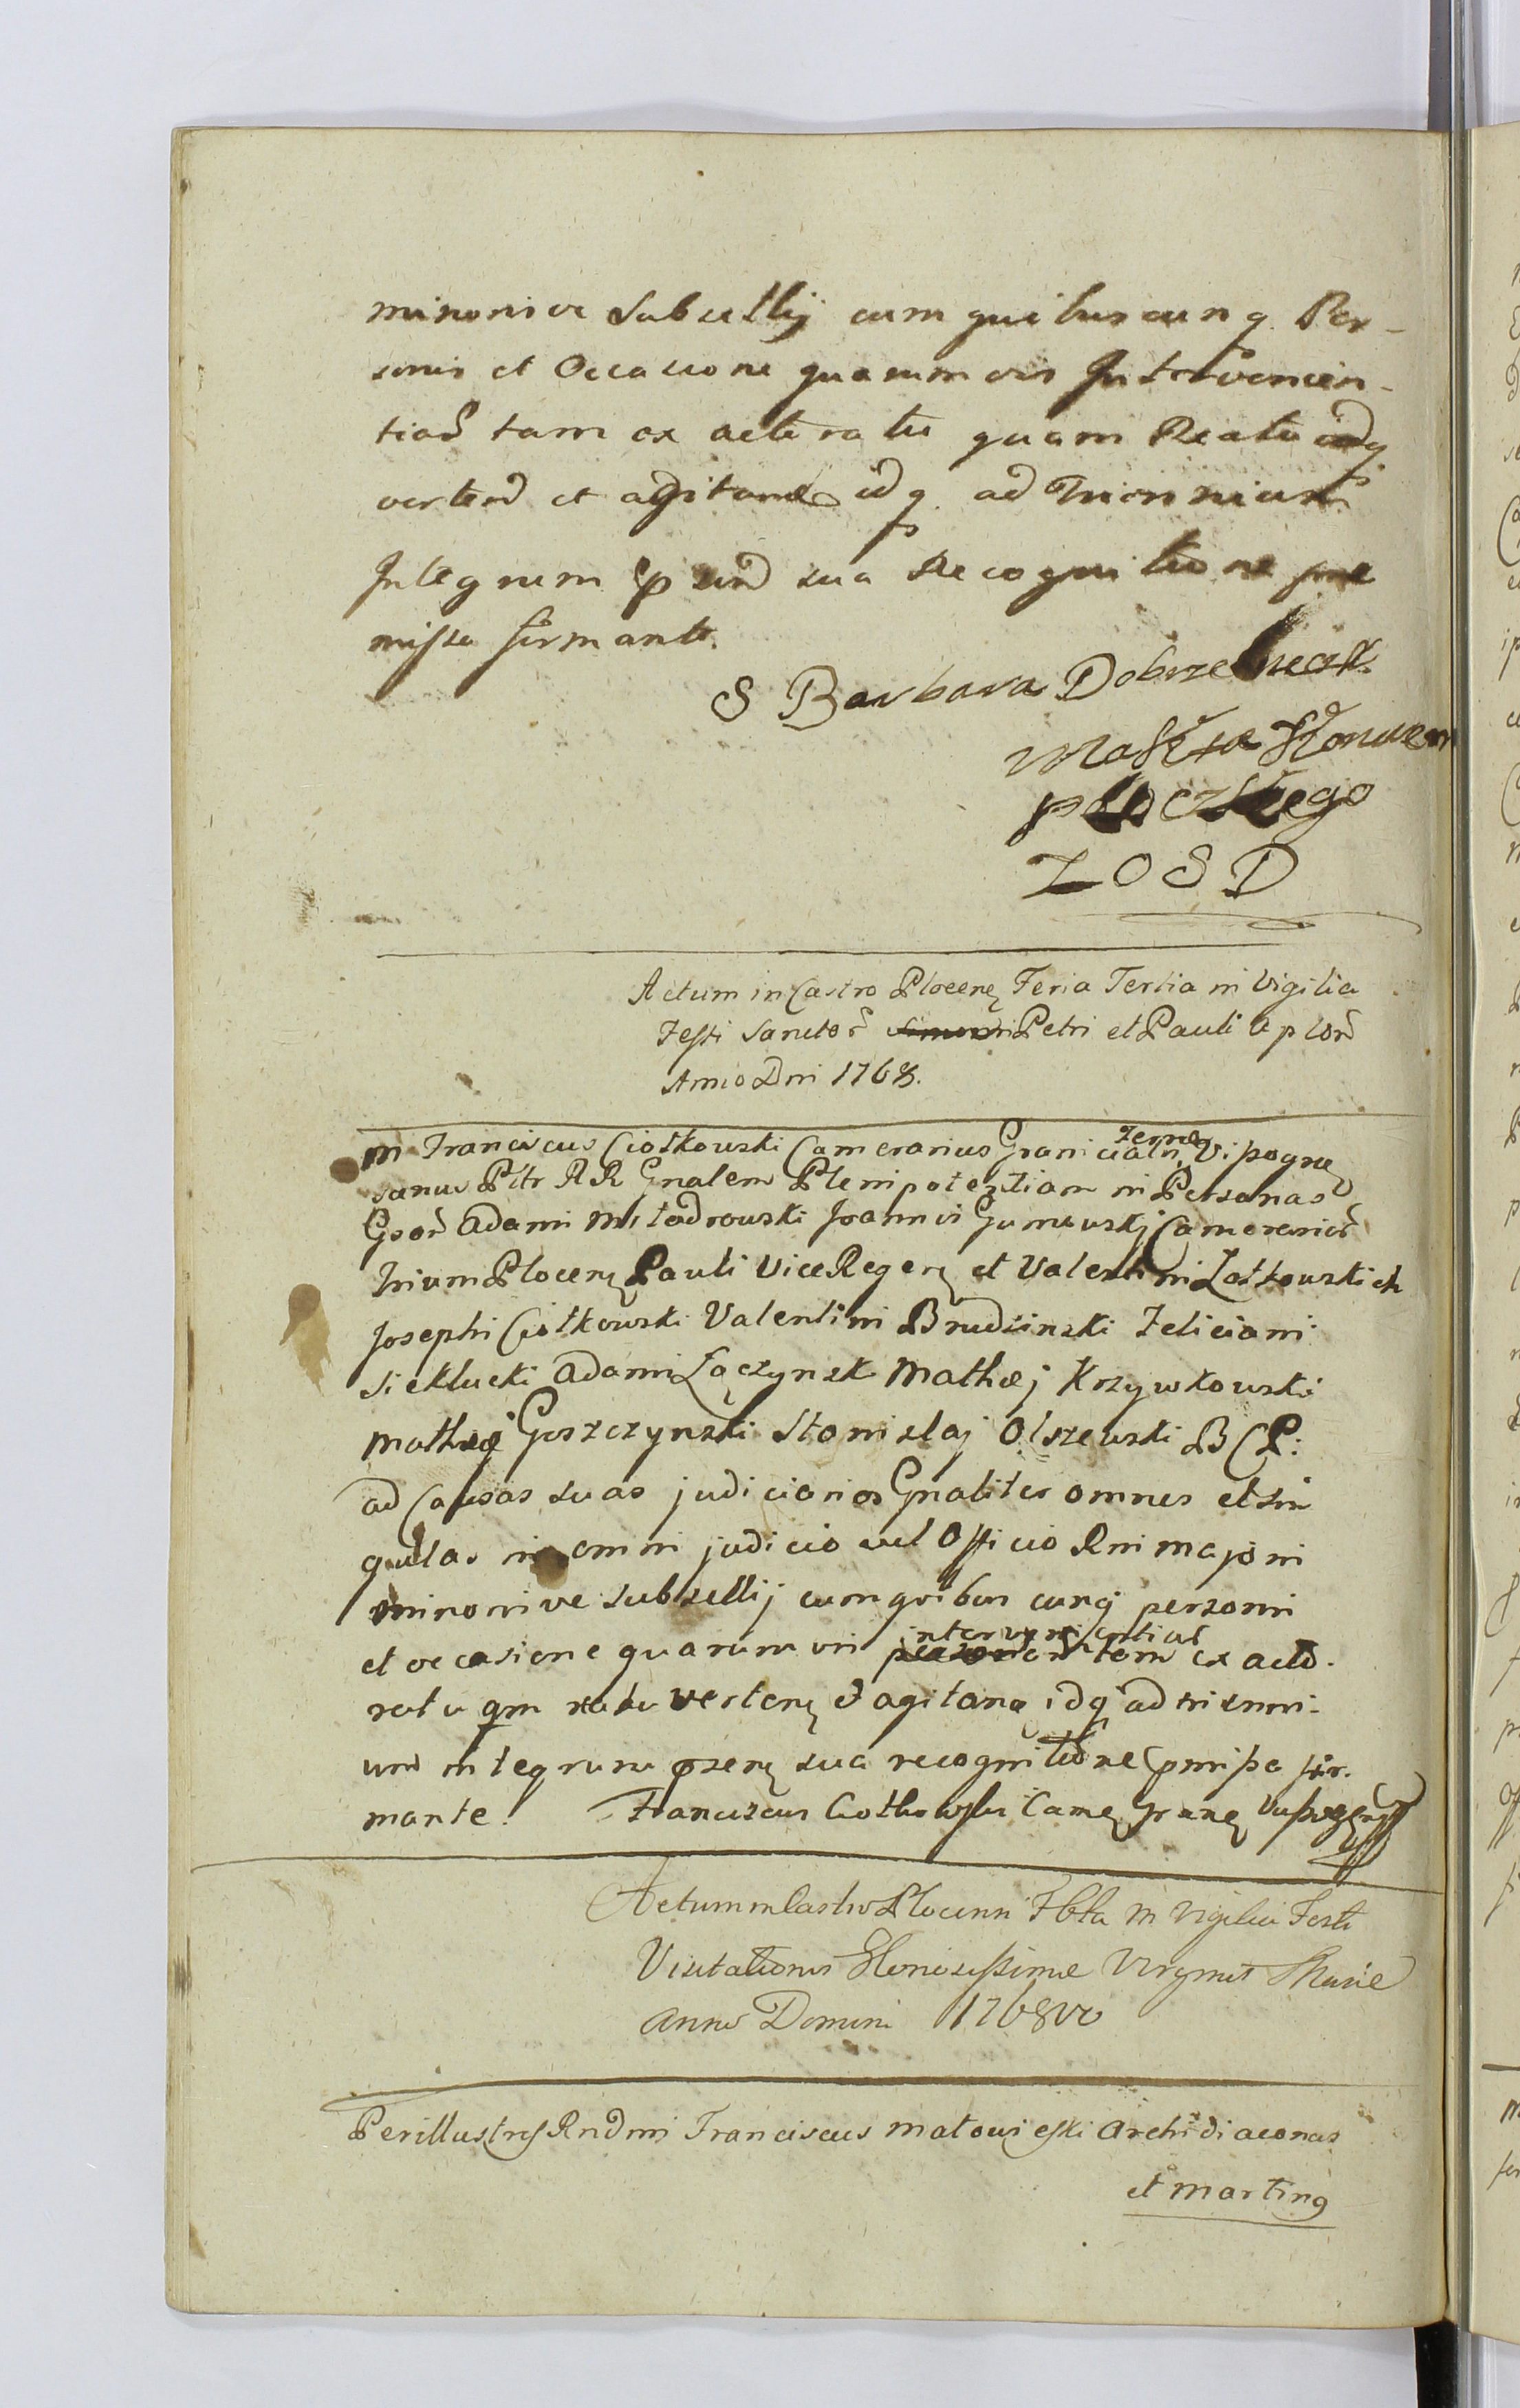 minorisve Subsellij cum quibuscunq Per-
sonis et Occasione quarumvis Intervenien-
tiar tam ex actoratu quam Reatu
verten et agitand idq ad Triennium
Integrum sua Recognitione prae
missa firmante.
S Barbara Dobrze
Matka Konwen
płoczkiego
Z O S D
Actum in Castro Plocen Feria Tertia in Vigilia
Festi Sanctor Petri et Pauli Aplor
Anno Dni 1768.
M Franciscus Ciotkowski Camerarius Granicialis Terrae Vipogrn
sanus Pltr R R Gnalem Plenipotentiam in Personas
Gsor Adami Miłodrowski Joannis Gumowskj Camerarior
Trium Plocen Pauli ViceRegen et Valentini Zotkowskich
Josephi Ciotkowski Valentini Brudzinski Feliciani
Sieklucki Adami Łączynsk Mathej Krzywkowski
Mathej Goszczynski Stanislaj Olszewski B C P:
ad Causas suas judiciarias Gnaliter omnes et sin
gulas in omni judicio vel Officio Rni majoris
minorisve subsellij cum quibus cunq personis
et occasione quarumvis intervenientiar tam ex acto-
ratu qm reatu verten & agitan idq ad trienni-
um integrum sua recognitione pmissa fir-
mante. Franciscus Ciotkowski Came Grane
Actum in Castro Plocensi Sbbta in Vigilia Festi
Visitationis Gloriosissimae Virginis Mariae
Anno Domini 1768vo
Perillustres Rndmi Franciscus Matowieski Archidiaconus
et Martin9